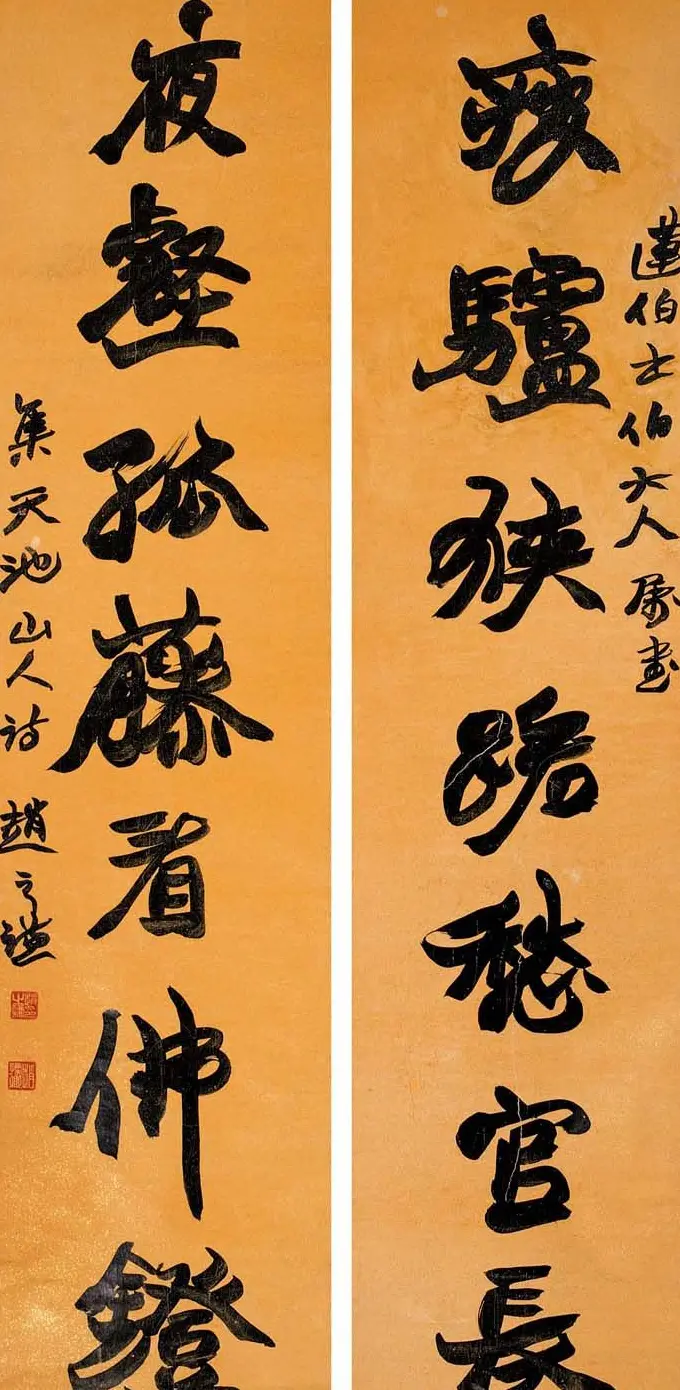 伯士伯大人屬書
瘦驢狹路愁官長
夜壑孤藤看佛鐙
集天池山人詩 趙之謙